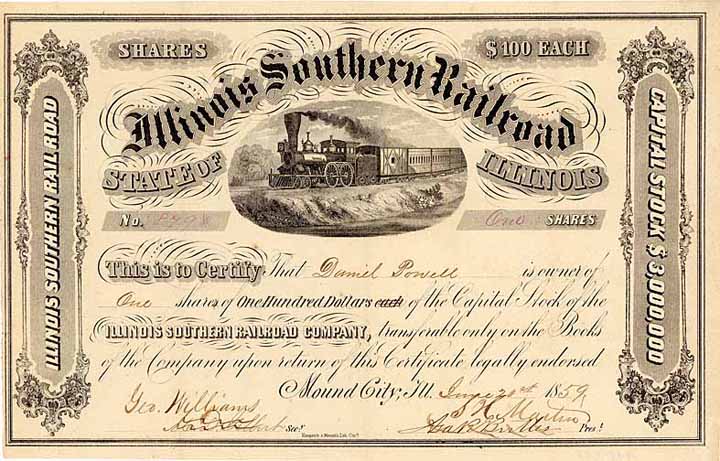 SHARES
$100 EACH
Illinois Southern Railroad
STATE OF ILLINOIS
ILLINOIS SOUTHERN RAIL ROAD
CAPITAL STOCK $3,000,000
No.
One SHARES
This is to Certify That Daniel Powell is owner of
One shares of One Hundred Dollars each of the Capital Stock of the
ILLINOIS SOUTHERN RAILROAD COMPANY, transferable only on the Books
of the Company upon return of this Certificate legally endorsed
Mound City, Ill. 1859
Geo. Williams
Martin
Secy.
Prest.